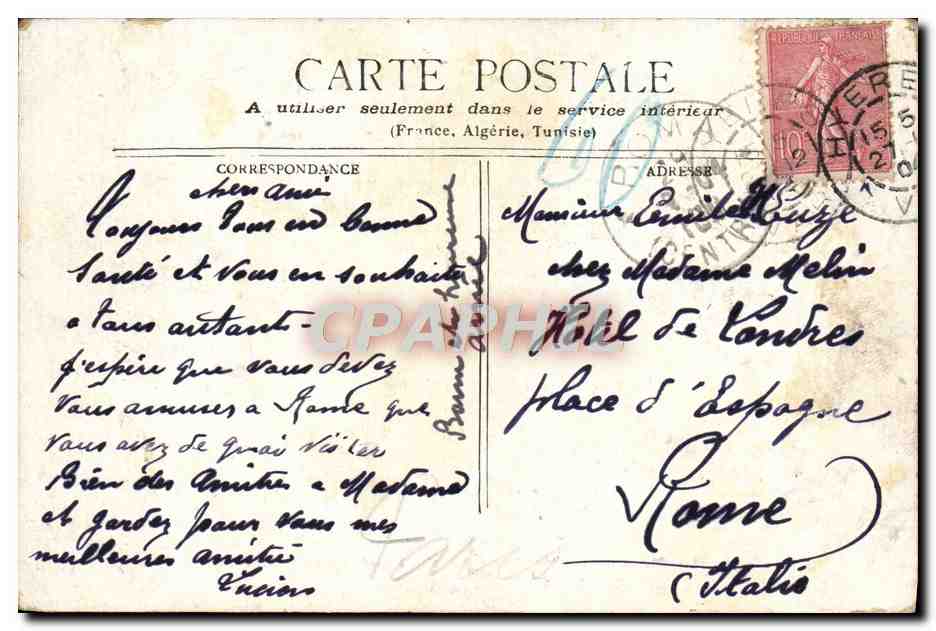 CARTE POSTALE
A utiliser seulement dans le service intérieur
(France, Algérie, Tunisie)
CORRESPONDANCE
ADRESSE
60
chers ami
Toujours tous en bonne
Santé et vous en souhaite
a tous autants-
J'espère que vous devez
vous amuser a Rome que
vous avez de quoi visiter
Bien des amitiés a Madame
et gardez pour vous mes
meilleures amitié
Lucien
Bonne et heureuse
année
Monsieur Emile
chez Madame Melin
Hotel de Londres
place d'Espagne
Rome
(Italie
Paris
REPUBLIQUE FRANÇAISE
10
HYERES
15 5
27
04
V
ROMA
(CENTR
CPAPHIL